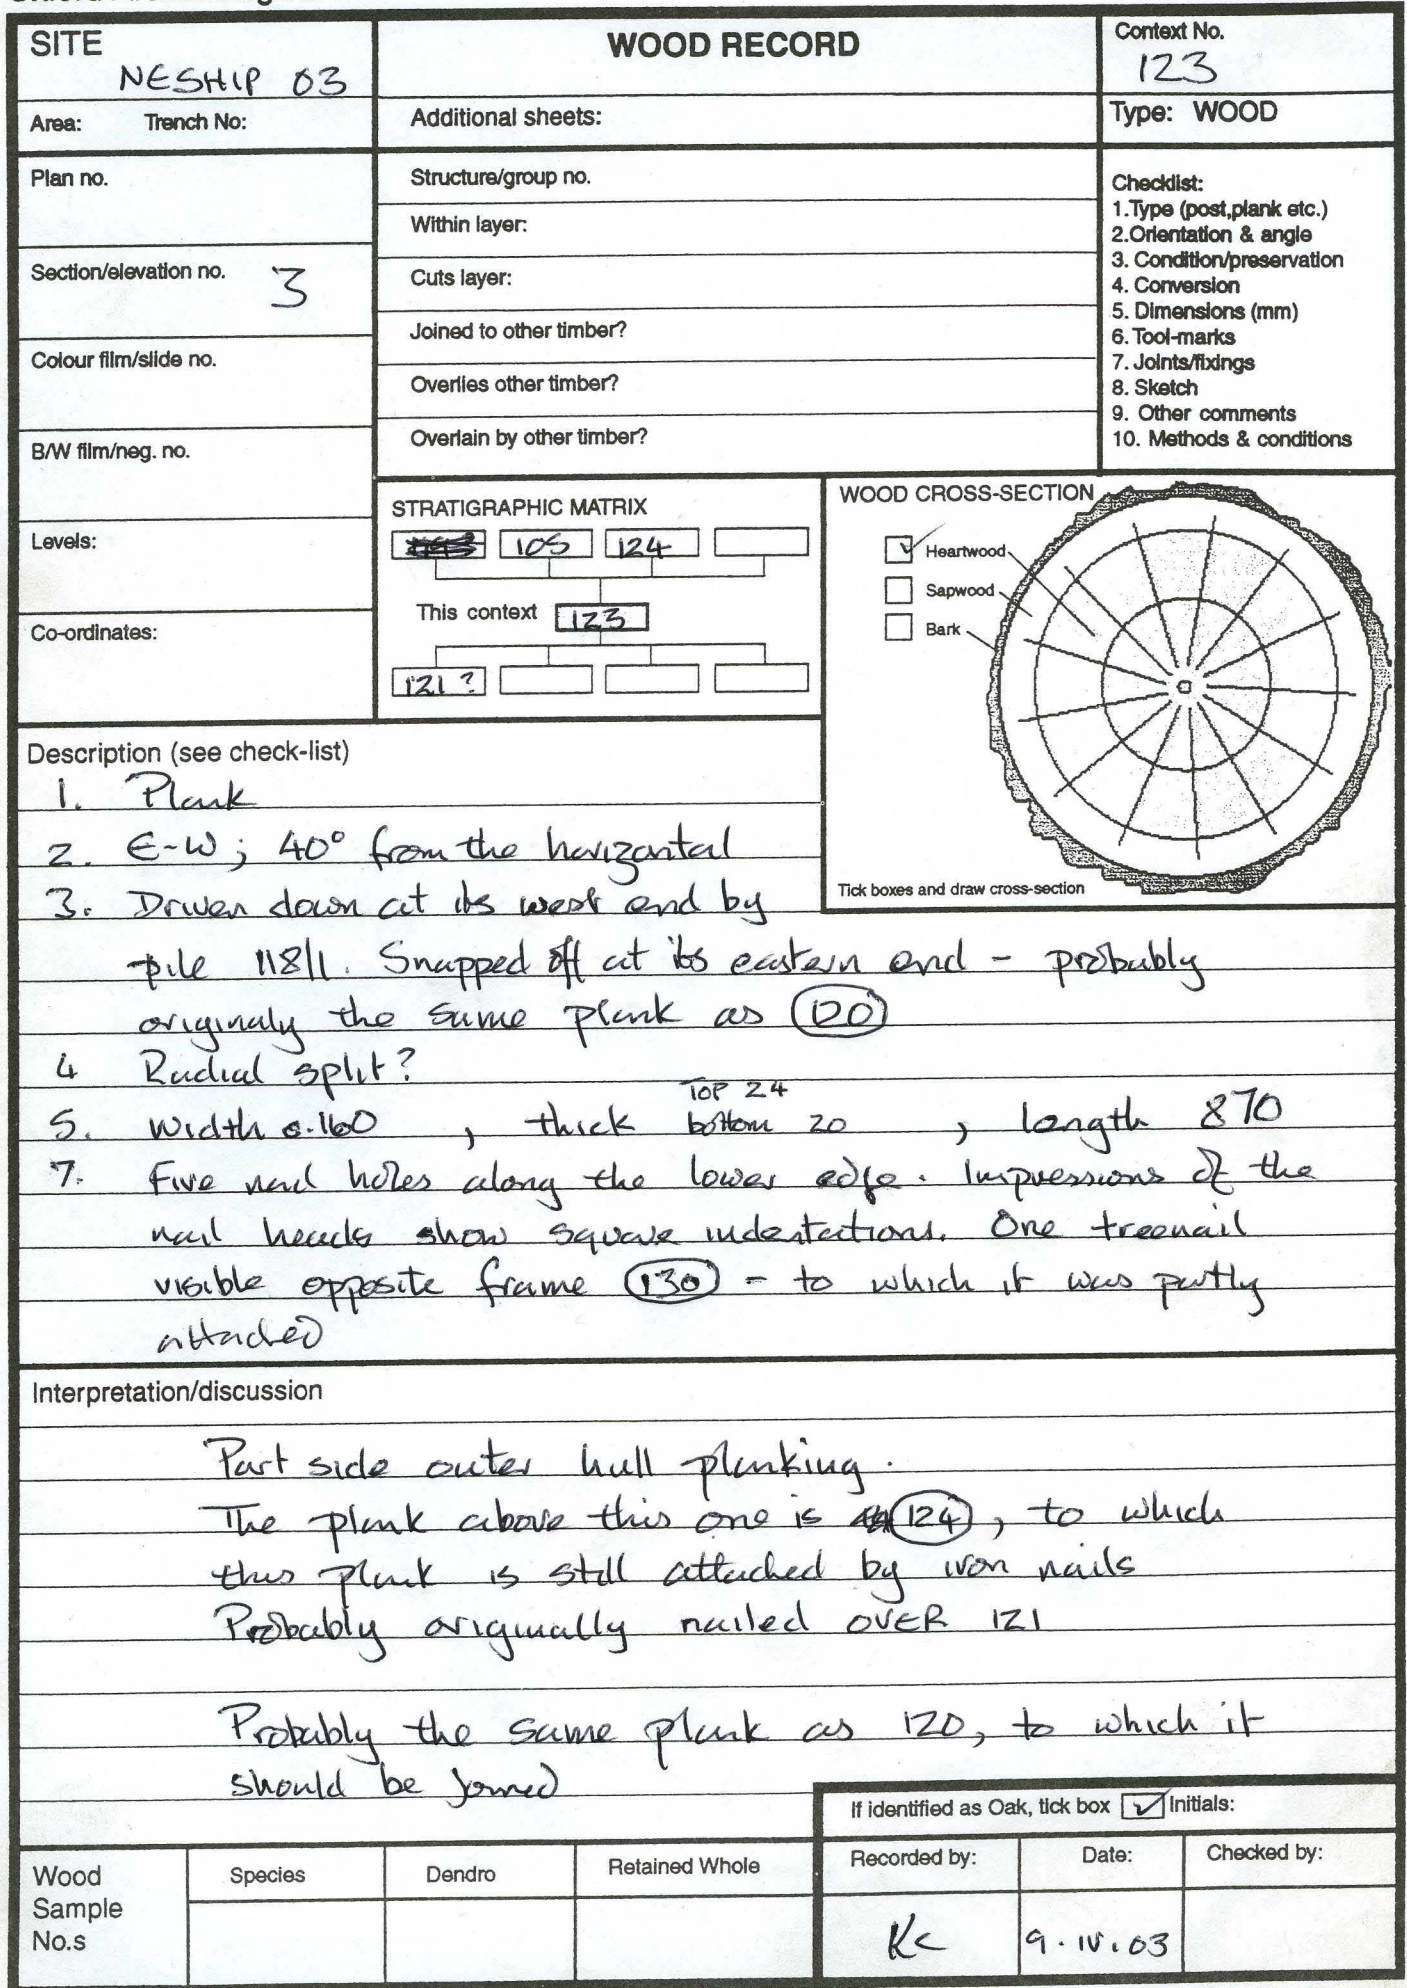 SITE
NESHIP 03
WOOD RECORD
Context No.
123
Area: Trench No:
Additional sheets:
Type: WOOD
Plan no.
Structure/group no.
Within layer:
Section/elevation no. 3
Cuts layer:
Joined to other timber?
Colour film/slide no.
Overlies other timber?
B/W film/neg. no.
Overlain by other timber?
Checklist:
1.Type (post,plank etc.)
2.Orientation & angle
3. Condition/preservation
4. Conversion
5. Dimensions (mm)
6. Tool-marks
7. Joints/fixings
8. Sketch
9. Other comments
10. Methods & conditions
Levels:
Co-ordinates:
STRATIGRAPHIC MATRIX
105 124
This context 123
121 ?
WOOD CROSS-SECTION
Heartwood
Sapwood
Bark
Tick boxes and draw cross-section
Description (see check-list)
1. Plank
2. E-W; 40° from the horizontal
3. Driven down at its west end by
pile 118/1. Snapped off at its eastern end - probably
originaly the same plank as 120
4 Radial split?
TOP 24
5. Width 0.160 , thick bottom 20 , length 870
7. Five nail holes along the lower edge. Impressions of the
nail heads show square indentations. One treenail
visible opposite frame 130 - to which it was partly
attached
Interpretation/discussion
Part side outer hull planking.
The plank above this one is 124, to which
this plank is still attached by iron nails
Probably originally nailed OVER 121
Probably the same plank as 120, to which it
should be joined
If identified as Oak, tick box Initials:
Wood Sample No.s
Species
Dendro
Retained Whole
Recorded by:
KC
Date:
9.IV.03
Checked by: